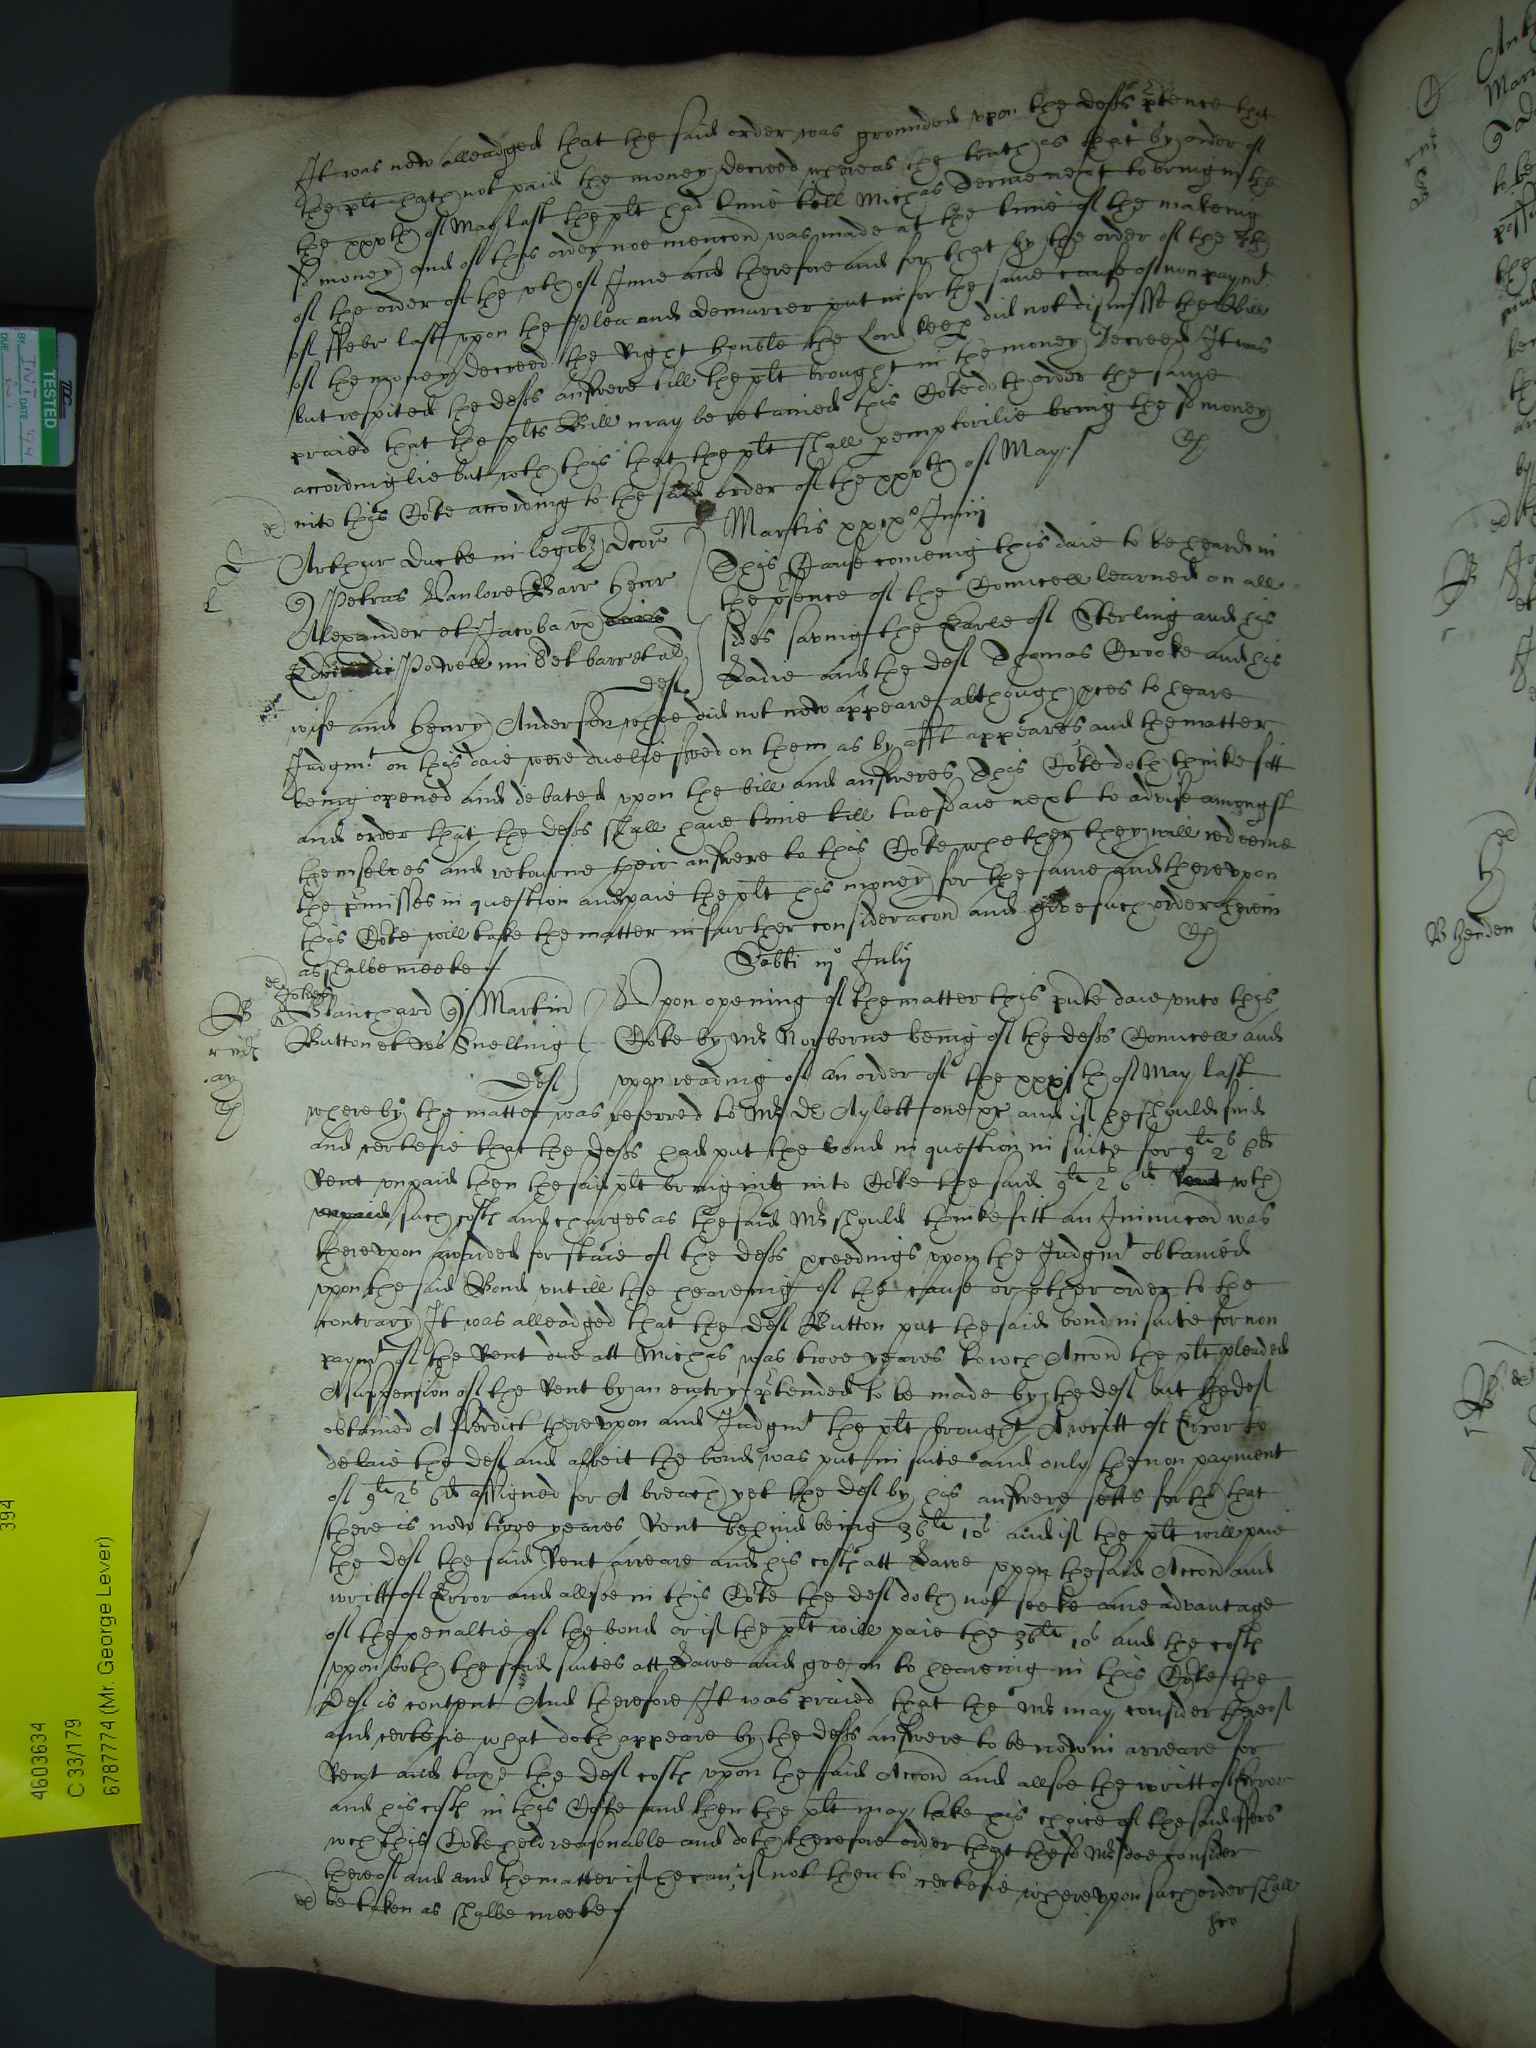 It was now alleadged that the said order was grounded upon the defts ptence that
the plt hath not paid the money decreed whereas the truth is that by order of
the xxvth of May last the plt had time till Michas Terme next to bring in the
sd money and of this order noe mencon was made at the time of the makeing
of the order of the vth of June and therefore and for that by the order of the
of Febr last upon the Plea and demurrer put in for the same cause of non paymt
of the money decreed the Right honble the Lord Keep did not dismisse the Bill
but respited the defts answere till the plt brought in the money decreed It was
praied that the plts Bill may be retained this Cote doth order the same
accordinglie but wth this that the plt shall pemptorilie bring the sd money
into this Cote according to the said order of the xxvth of May
Martis xxix° Junii
Arthur Ducke in legibz Dcor
Petrus Vanlore Barr Henr
Alexander et Jacoba ux
Powell mi et barr et al
def
This Cause comeing this daie to be heard in
the psence of the Councell learned on all
sides saving the Earle of Sterling and his
Ladie and the def Thomas Crooke and his
wife and Henry Anderson whoe did not now appeare although pces to heare
Judgmt on this daie were duelie sved on them as by afft appeares and the matter
being opened and debated upon the bill and answeres This Cote doth thinke fitt
and order that the defts shall have time till tuesdaie next to advise amongst
themselves and retourne their answere to this Cote whether they will redeeme
the pmisses in question and paie the plt his money for the same and thereupon
this Cote will take the matter in further consideracon and give such order therein
as shalbe meete
Sabti iij° Julij
Johes
Blanchard Martin
Button et Snelling
def
Upon opening of the matter this pnte daie unto this
Cote by Mr Norborne being of the defts Councell and
upon reading of an order of the xxxjth of May last
whereby the matter was referred to Mr Dr Aylett one &c and if he should find
and certefie that the defts had put the bond in question in suite for 9li 2s 6d
Rent unpaid then the said plt bringing into Cote the said 9li 2s 6d wth
such costs and charges as the said Mr should thinke fitt an Iniuncon was
thereupon awarded for staie of the defts pceedings upon the Judgmt obtained
upon the said Bond untill the heareing of the cause or other order to the
contrary It was alleadged that the def Button put the said bond in suite for non
paymt of the Rent due att Michas was twoe yeares to wch Accon the plt pleaded
A suspension of the Rent by an entry ptended to be made by the def but the def
obtained A verdict thereupon and Judgmt the plt brought A writt of Error to
delaie the def and albeit the bond was put in suite and only the non payment
of 9li 2s 6d assigned for A breach yet the def by his answere setts forth that
there is now twoe yeares Rent behind being 36li 10s and if the plt will paie
the def the said Rent arreare and his costs att Lawe upon the said Accon and
writt of Error and allsoe in this Cote the def doth not seeke anie advantage
of the penaltie of the bond or if the plt will paie the 36li 10s and the costs
upon both the said suites att Lawe and goe on to heareing in this Cote the
def is content And therefore It was praied that the Mr may consider thereof
and certefie what doth appeare by the defts answere to be now in arreare for
Rent and taxe the def costs upon the said Accon and allsoe the writt of Error
and his costs in this Cote and then the plt may take his choice of the said offers
wch this Cote held reasonable and doth therefore order that the sd Mr doe consider
thereof and end the matter if he can if not then to certefie whereupon such order shall
be taken as shalbe meete
B Henden
TESTED
DATE
DUE
394
4603634
C 33/179
6787774 (Mr. George Lever)